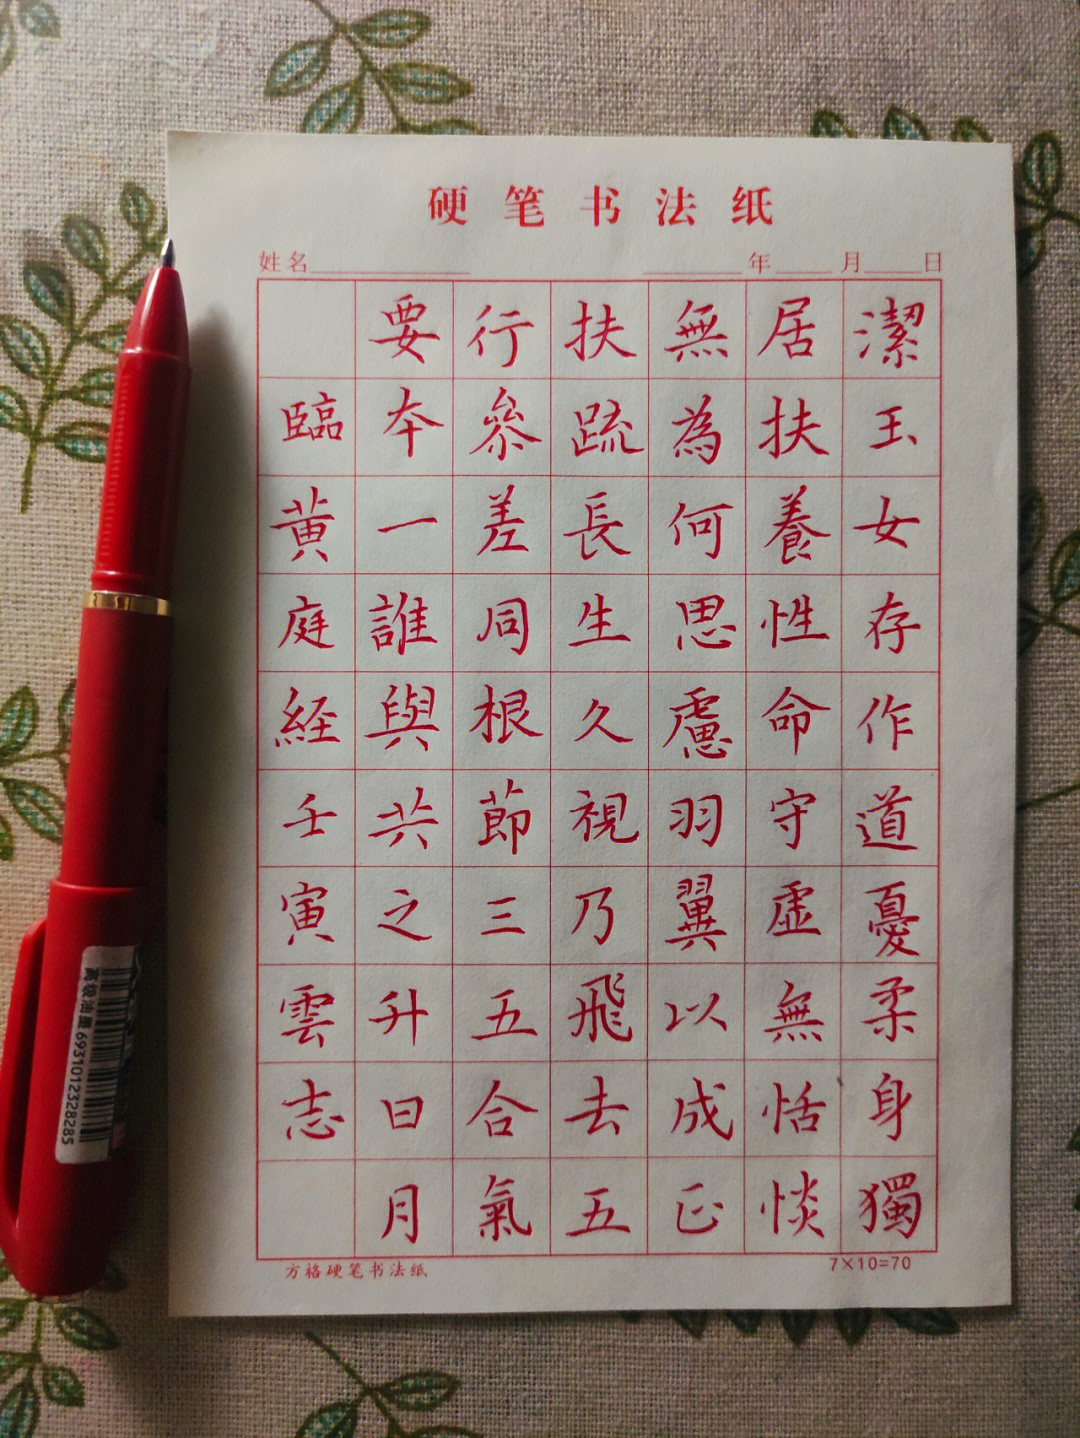 硬笔书法纸
姓名 年 月 日
潔玉女存作道憂柔身獨
居扶養性命守虛無恬惔
無為何思慮羽翼以成正
扶疏長生久視乃飛去五
行參差同根節三五合氣
要本一誰與共之升日月
臨黃庭経壬寅雲志
方格硬笔书法纸
7×10=70
高级油墨
6931012328285